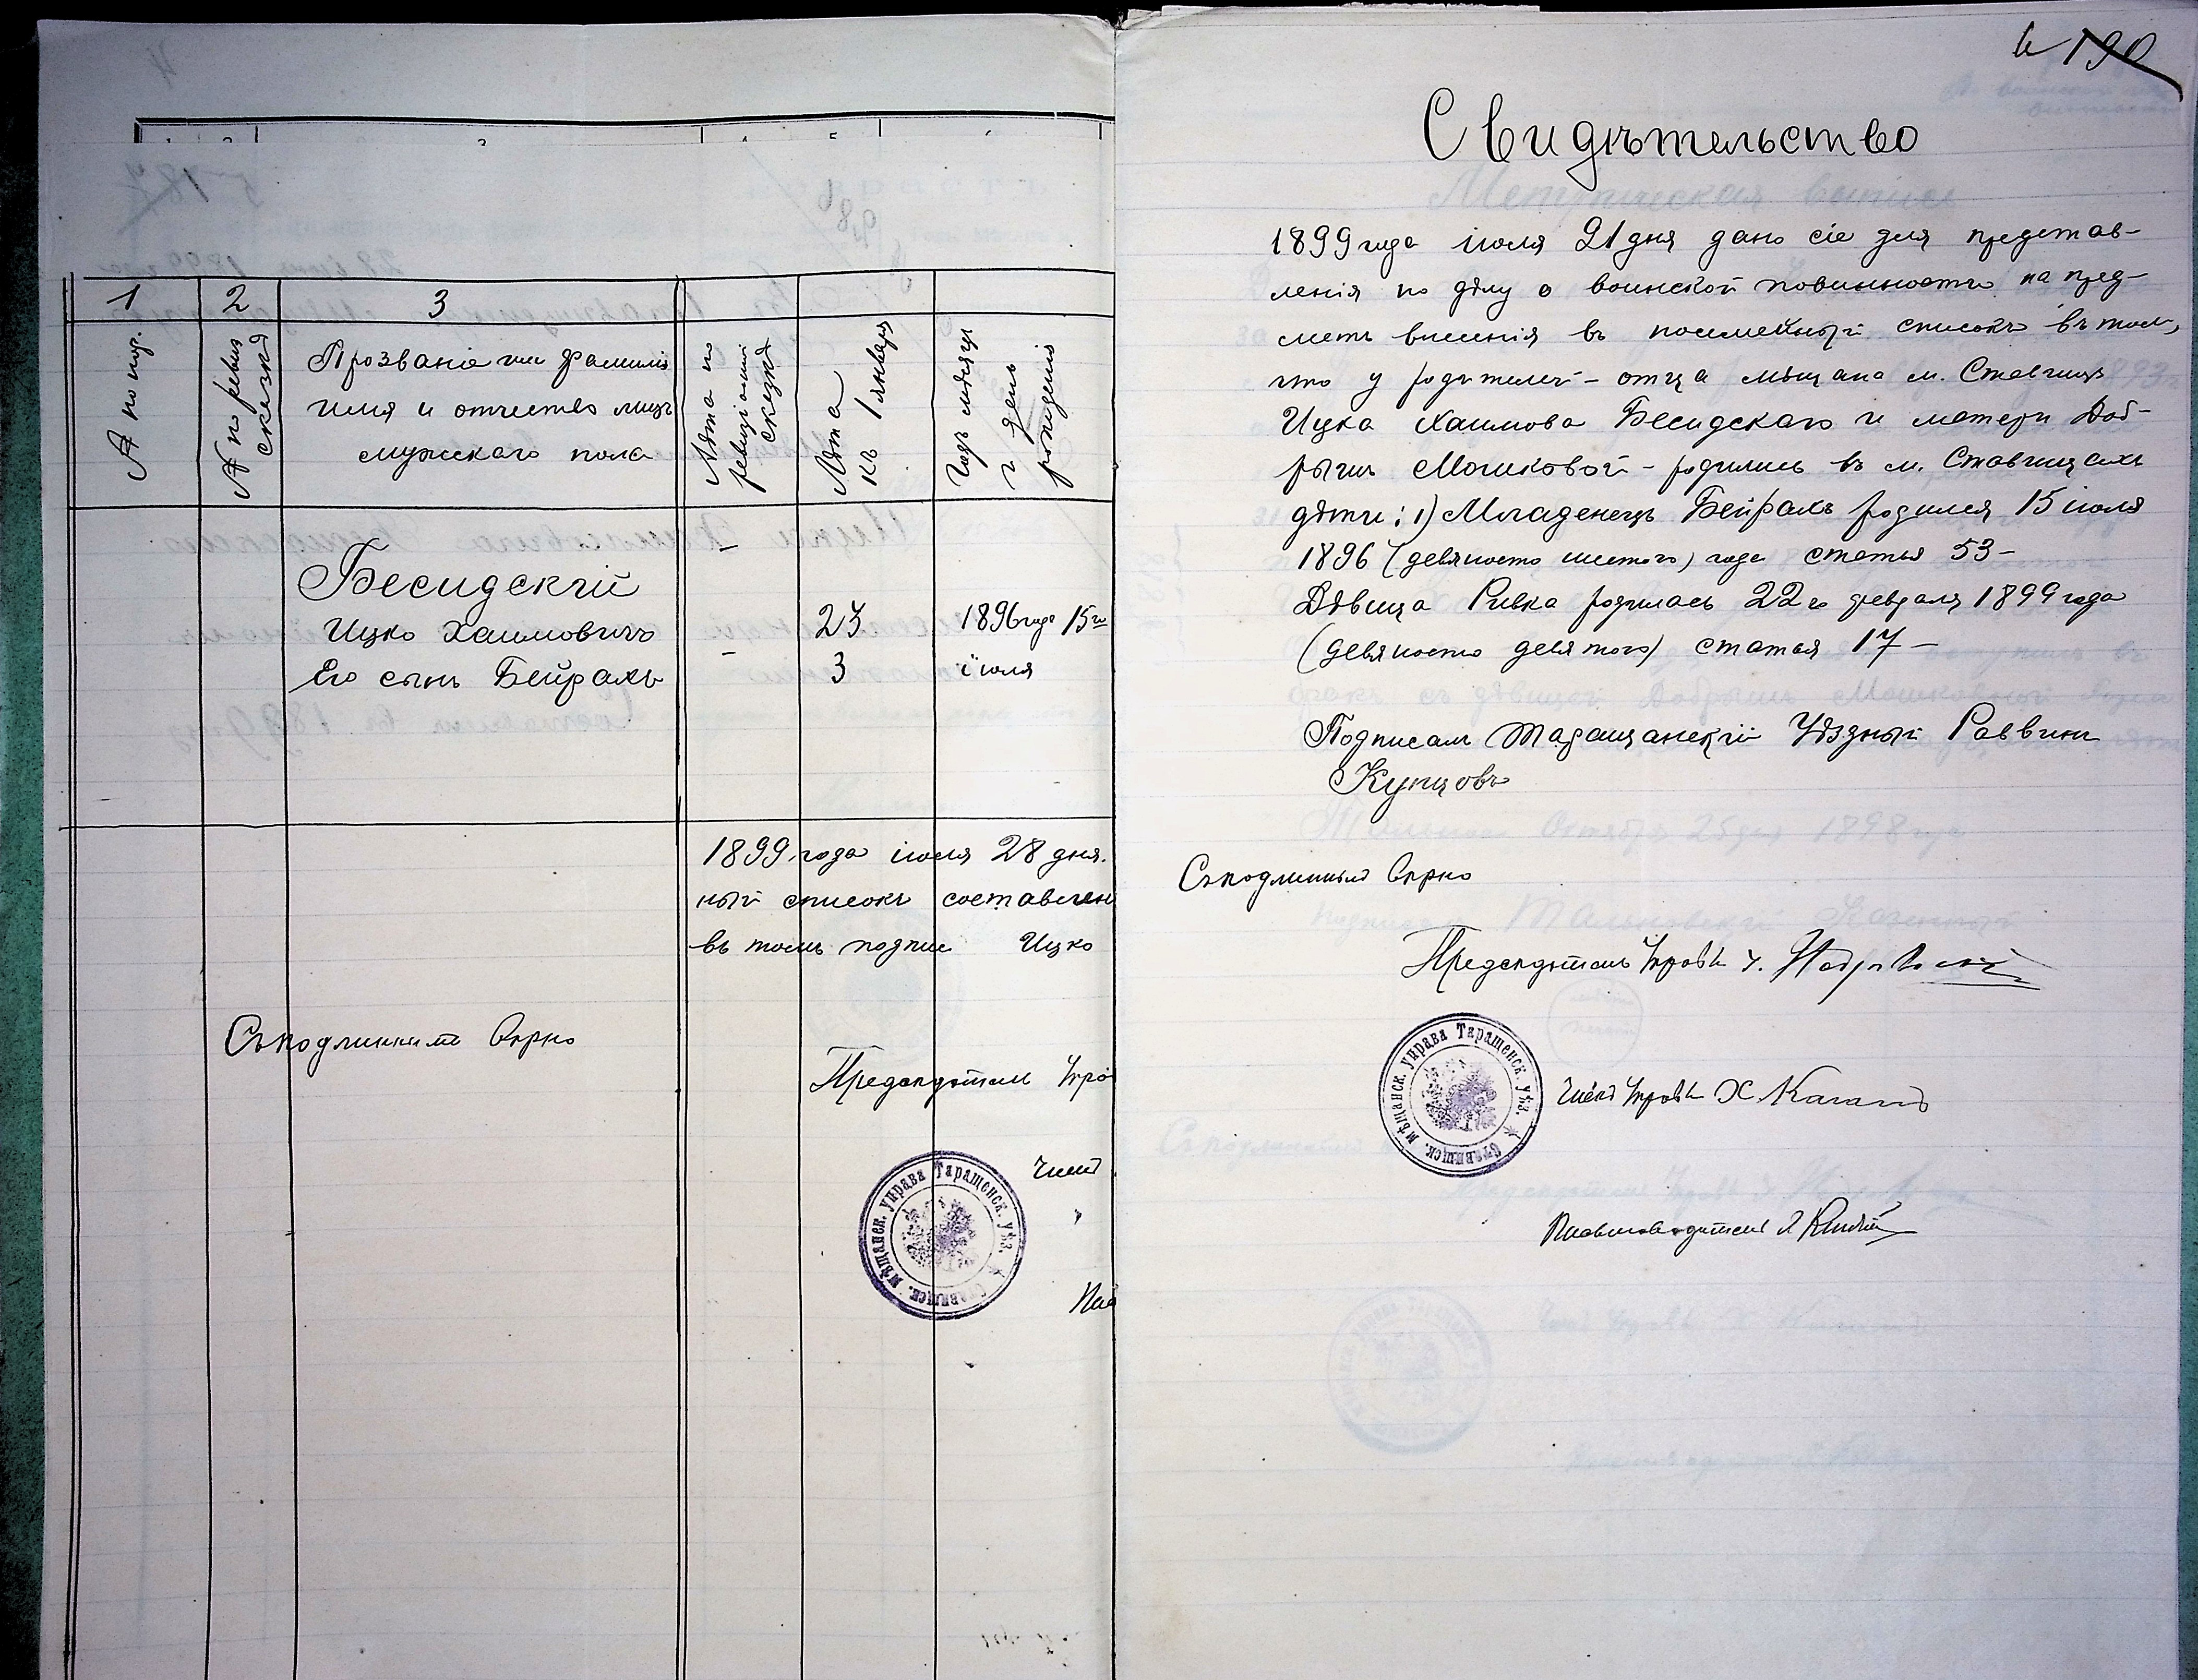 1
2
3
№ по пор.
№ по ревиз
сказкѣ
Прозваніе или фамилія
имя и отчество лицъ
мужскаго пола
Лѣта по
ревизіонной
сказкѣ
Лѣта
къ 1 января
Годъ мѣсяцъ
и день
рожденія
Бесидскій
Ицко Хаимовичъ
23
1896 года 15го
Его сынъ Бейрахъ
3
іюля
1899 года іюля 28 дня.
ный списокъ составлен
въ томъ подпис Ицко
Съ подлиннымъ вѣрно
Предсѣдатель Упра
Членъ
мѣщанск. управа Таращенск. уѣз. Ставищск.
190
Свидѣтельство
1899 года іюля 21 дня дано сіе для представ-
ленія по дѣлу о воинской повинности на пред-
метъ внесенія въ посемейный списокъ въ томъ,
что у родителей - отца мѣщана м. Ставищъ
Ицка Хаимова Бесидскаго и матери Доб-
рышъ Мошковой - родились въ м. Ставищахъ
дѣти: 1) Младенецъ Бейрахъ родился 15 іюля
1896 (девяносто шестого) года статья 53 -
Дѣвица Ривка родилась 22го февраля 1899 года
(девяносто девятого) статья 17 -
Подписалъ Таращанскій Уѣздный Раввинъ
Купцовъ
Съ подлиннымъ вѣрно
Предсѣдатель Управы
Членъ Управы Х Каганъ
мѣщанск. управа Таращенск. уѣз. Ставищск.
Письмоводитель